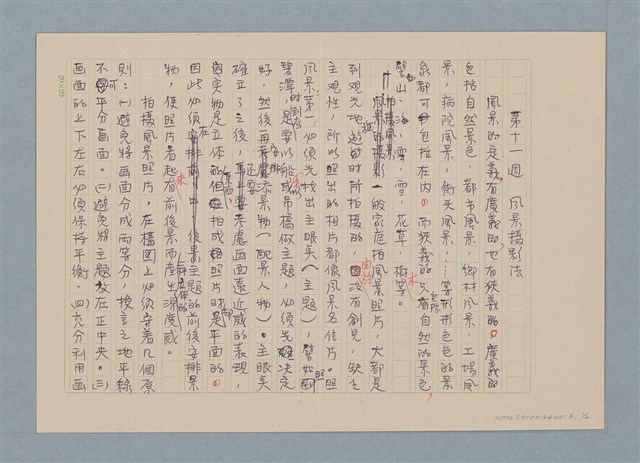 第十一週　風景攝影法
風景的定義有廣義的，也有狹義的。廣義的
包括自然景色，都市風景，鄉村風景，工場風
景，病院風景，街頭風景，……等形形色色的景
象都可包括在內。而狹義的只有包括自然的景色，
譬如山、海、雲、雪、花草，樹木等。
拍攝風景 一般家庭拍風景照片，大都是
到觀光地遊玩時所拍攝的，因由於沒有創見，缺乏
主觀性，所以照出的相片都像風景名信片。照
風景第一必須先找出主眼矣（主題），譬如到
碧潭時，是要以船或吊橋做主題，必須先決定
好，然後再考慮安排添景物（配景人物）。主眼矣
確立了之後，還要考慮畫面遠近感的表現，
因實物是立体的但拍成照片時是平面的，
因此必須在主題的前後安排景
物，使照片看起來有前後景而產生深度感。
拍攝風景照片，在構圖上必須守着几個原
則：㈠避免將畫面分成兩等分，換言之地平線
不可平分畫面。㈡避免將主題放在正中央。㈢
畫面的上下左右必須保持平衡。㈣充分利用畫
20×20